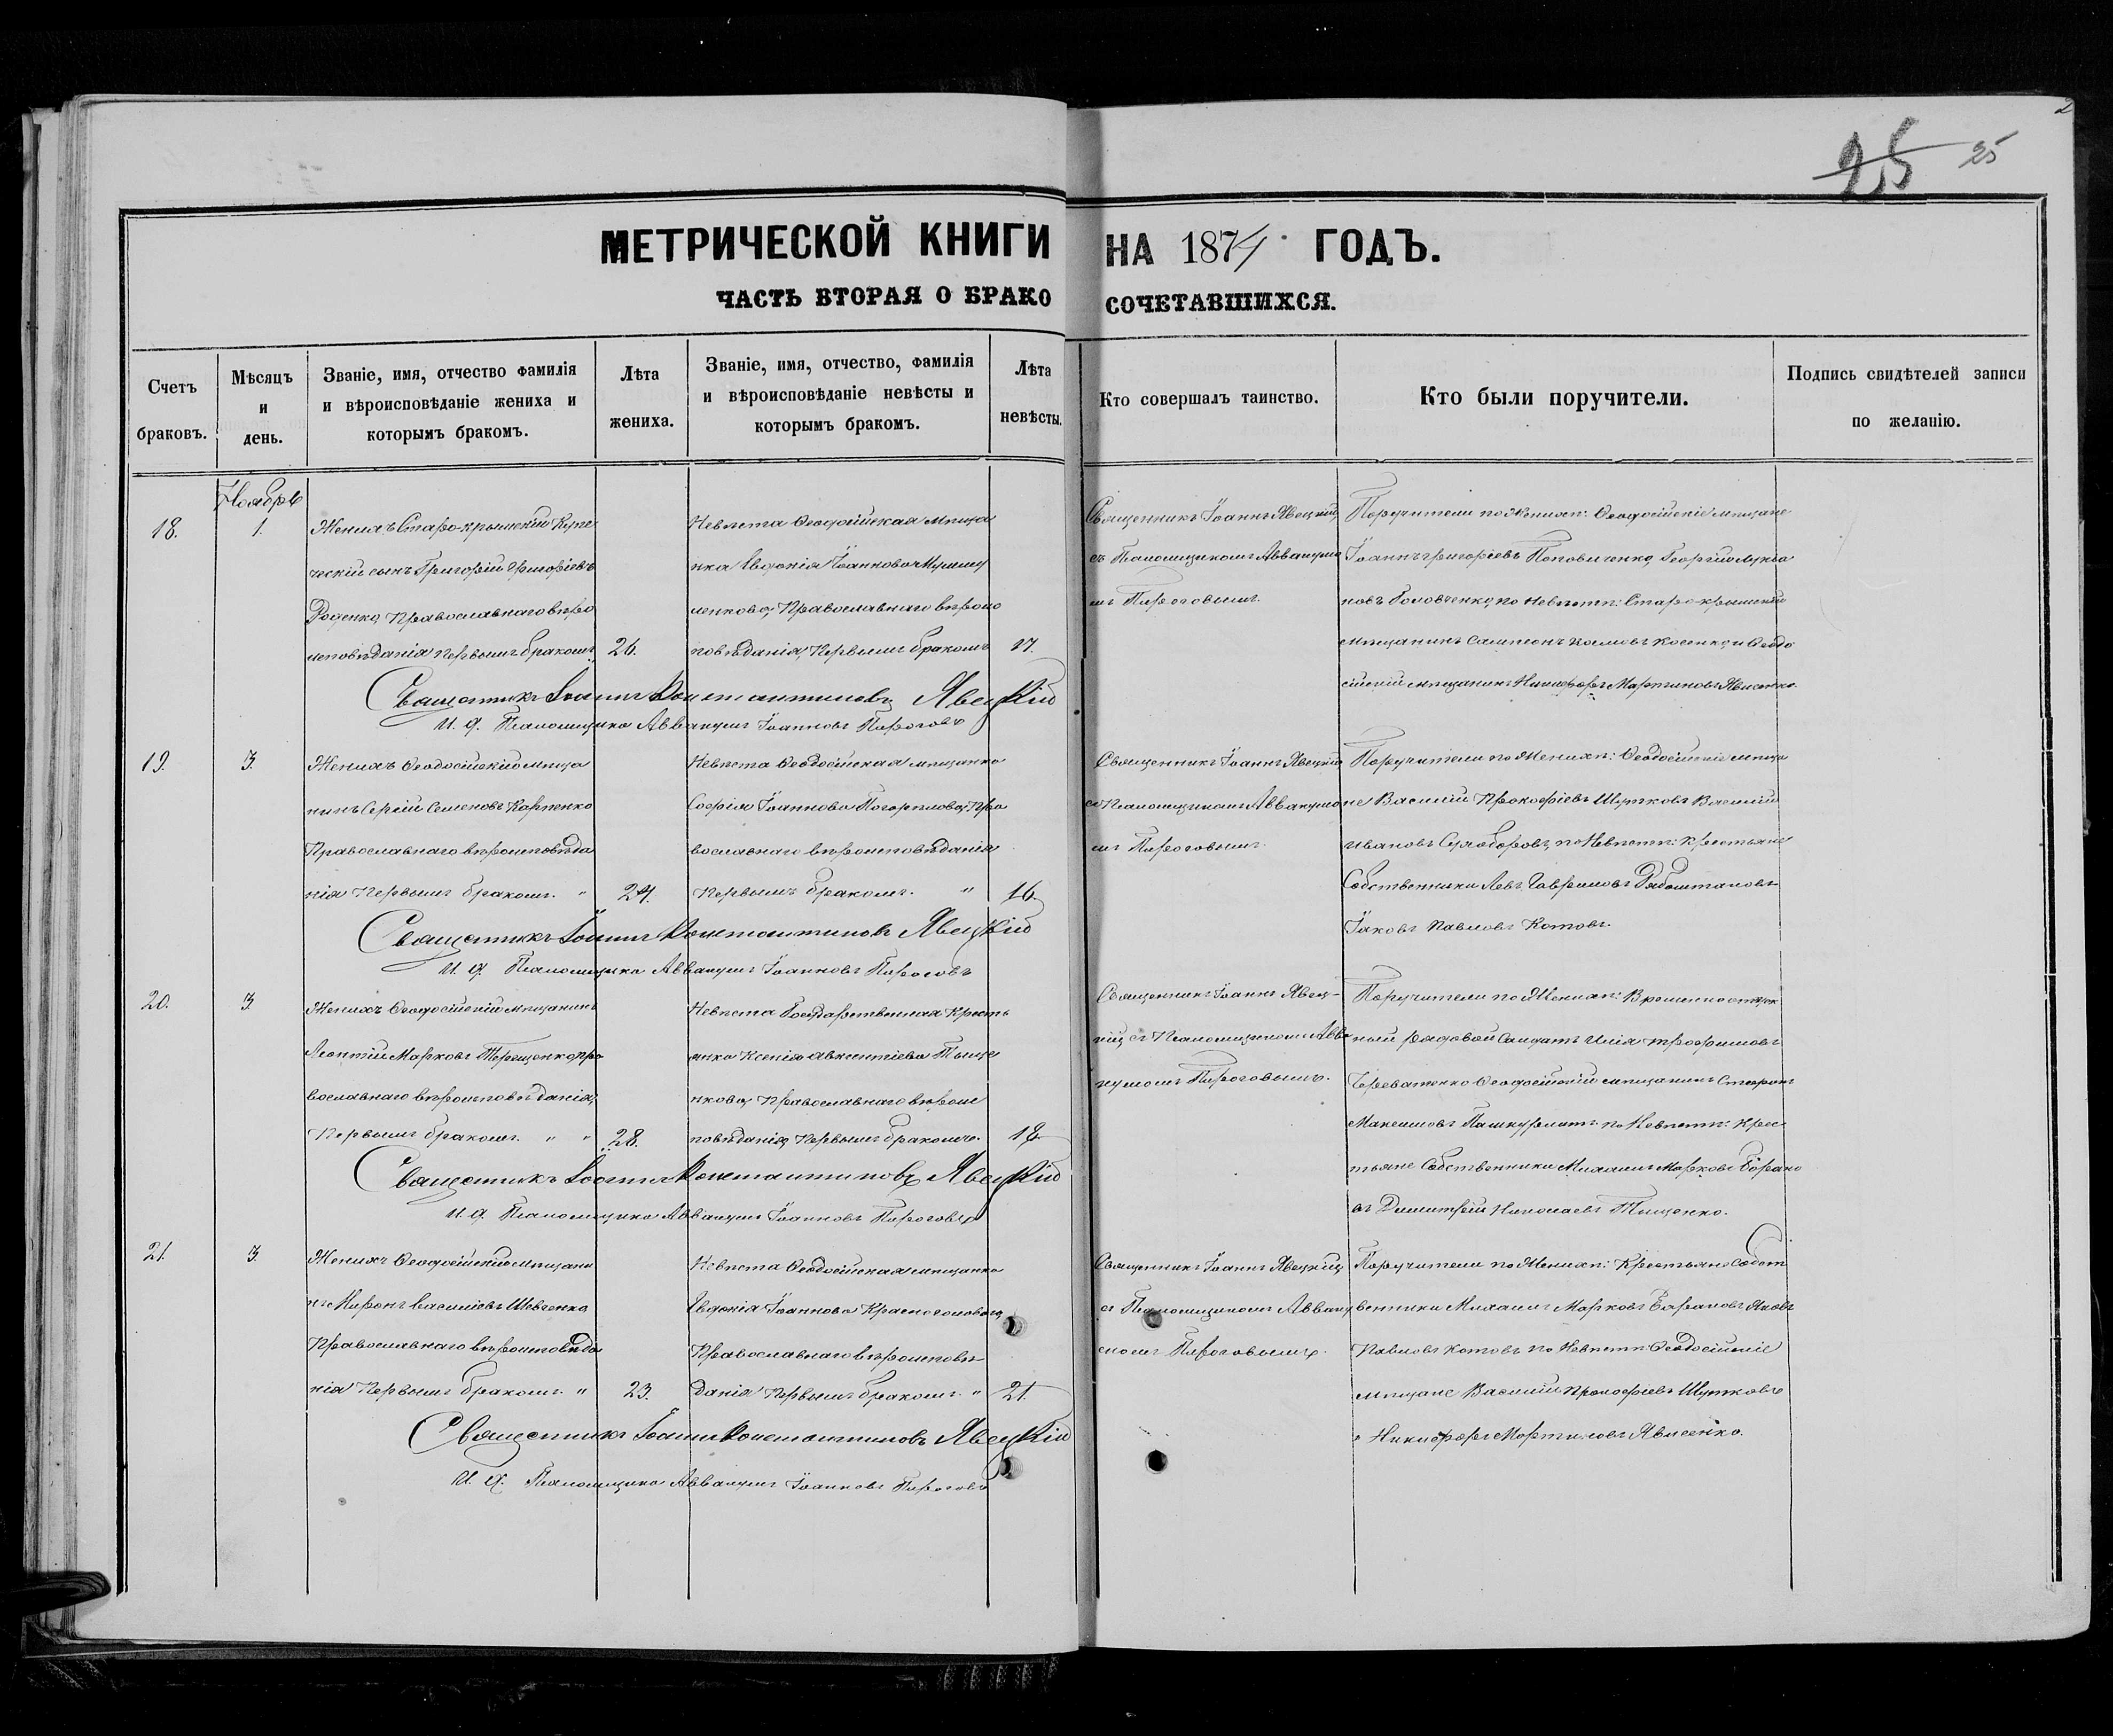 25 25
МЕТРИЧЕСКОЙ КНИГИ НА 1874 ГОДЪ.
ЧАСТЬ ВТОРАЯ О БРАКОСОЧЕТАВШИХСЯ.
Счетъ браковъ.
Мѣсяцъ и день.
Званіе, имя, отчество фамилія
и вѣроисповѣданіе жениха и
которымъ бракомъ.
Лѣта
жениха.
Званіе, имя, отчество, фамилія
и вѣроисповѣданіе невѣсты и
которымъ бракомъ.
Лѣта
невѣсты.
Кто совершалъ таинство.
Кто были поручители.
Подпись свидѣтелей записи
по желанію.
Ноябрь
18.
1.
Женихъ Старо-крымскій Купе
ческій сынъ Григорій Григоріевъ
Доценко, Православнаго вѣро
исповѣданія первымъ бракомъ
26.
Невѣста Ѳеодосійская мѣща
нка Евдокія Іоаннова
Православнаго вѣроис
повѣданія, первымъ бракомъ
17.
Священникъ Іоаннъ Явецкій,
съ Псаломщикомъ Аввакумо
мъ Пироговымъ.
Поручители по Женихѣ: Ѳеодосійскіе мѣщане
Іоаннъ Григоріевъ Поповиченко, Георгій Лукья
новъ Головченко, по Невѣстѣ: Старо-крымскій
мѣщанинъ Сампсонъ Косенко, и Ѳеодо
сійскій мѣщанинъ Никифоръ Мартиновъ Явисенко.
Священникъ Іоаннъ Константиновъ Явецкій
И. д. Псаломщика Аввакумъ Іоанновъ Пироговъ
19.
3.
Женихъ Ѳеодосійскій мѣща
нинъ Сергій Семеновъ Карпенко
Православнаго вѣроисповѣда
нія первымъ бракомъ. "
24.
Невѣста Ѳеодосійская мѣщанка
Софія Іоаннова Погорѣлова, Пра
вославнаго вѣроисповѣданія
первымъ бракомъ. "
16.
Священникъ Іоаннъ Явецкій
съ Псаломщикомъ Аввакумо
мъ Пироговымъ.
Поручители по Женихѣ: Ѳеодосійскіе мѣща
не Василій Прокофіевъ Шутковъ Василій
Ивановъ по Невѣстѣ: крестьяне
Собственники Левъ Гавриловъ
Іаковъ Павловъ Котовъ.
Священникъ Іоаннъ Константиновъ Явецкій
И. д. Псаломщика Аввакумъ Іоанновъ Пироговъ
20.
3.
Женихъ Ѳеодосійскій мѣщанинъ
Леонтій Марковъ Терещенко, пра
вославнаго вѣроисповѣданія,
первымъ бракомъ. " "
28.
Невѣста Государственная кресть
янка Ксенія Авксентіева Тыще
нкова, Православнаго вѣроис
повѣданія, первымъ бракомъ.
18.
Священникъ Іоаннъ Явец-
кій, съ Псаломщикомъ Авва
кумомъ Пироговымъ.
Поручители по Женихѣ: Временно отпуск
ный рядовой Солдатъ Илія Трофимовъ
Череватенко Ѳеодосійскій мѣщанинъ
Максимовъ по Невѣстѣ: Крес
тьяне Собственники Михаилъ Марковъ Барано
въ Димитрій Николаевъ Тищенко.
Священникъ Іоаннъ Константиновъ Явецкій
И. д. Псаломщика Аввакумъ Іоанновъ Пироговъ
21.
3.
Женихъ Ѳеодосійскій мѣщани
нъ Миронъ Василіевъ Шевченко
Православнаго вѣроисповѣда
нія первымъ бракомъ. "
23.
Невѣста Ѳеодосійская мѣщанка
Евдокія Іоаннова Красноголовова,
Православнаго вѣроисповѣ
данія первымъ бракомъ. "
21.
Священникъ Іоаннъ Явецкій,
съ Псаломщикомъ Авваку
момъ Пироговымъ.
Поручители по Женихѣ: Крестьяне Собст
венники Михаилъ Марковъ Барановъ Яковъ
Павловъ Котовъ по Невѣстѣ Ѳеодосійскіе
мѣщане Василій Прокофіевъ Шутковъ
и Никифоръ Мартиновъ Явисенко.
Священникъ Іоаннъ Константиновъ Явецкій
И. д. Псаломщика Аввакумъ Іоанновъ Пироговъ